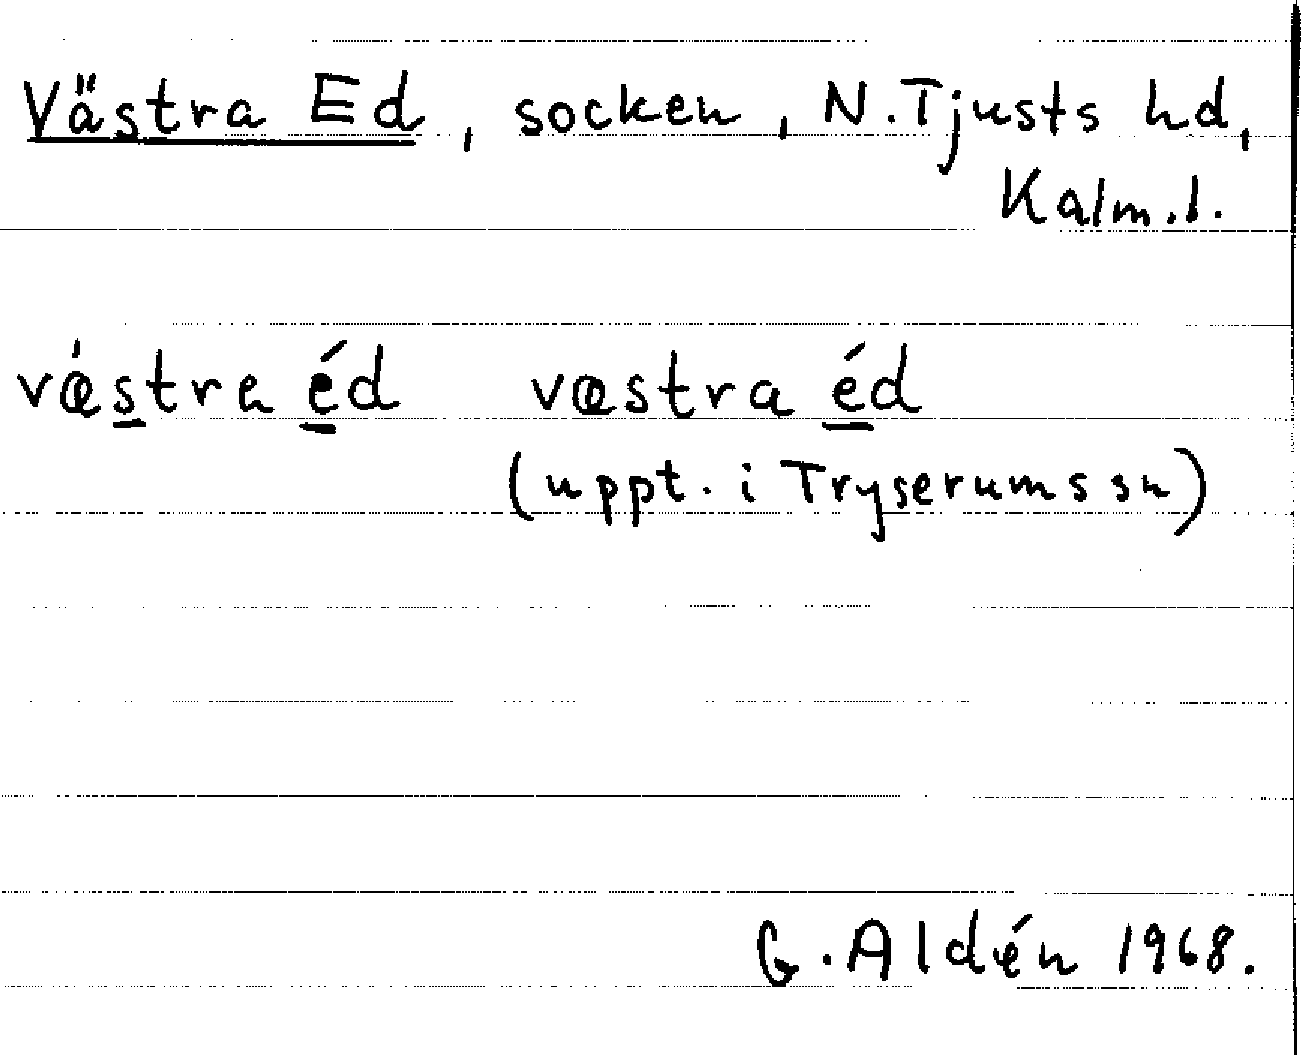 Västra Ed, socken, N. Tjusts hd,
Kalm.l.
vǽstra éd væstra éd
(uppt. i Tryserums sn)
G. Aldén 1968.